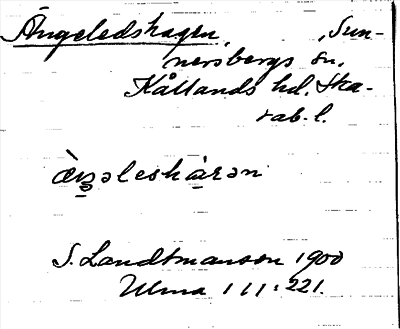 Ängeledshagen, Sun-
nersbergs sn,
Kållands hd. Ska-
rab. l.
ὰŋəleshàgən
S. Landtmanson 1900
Ulma 111:221.